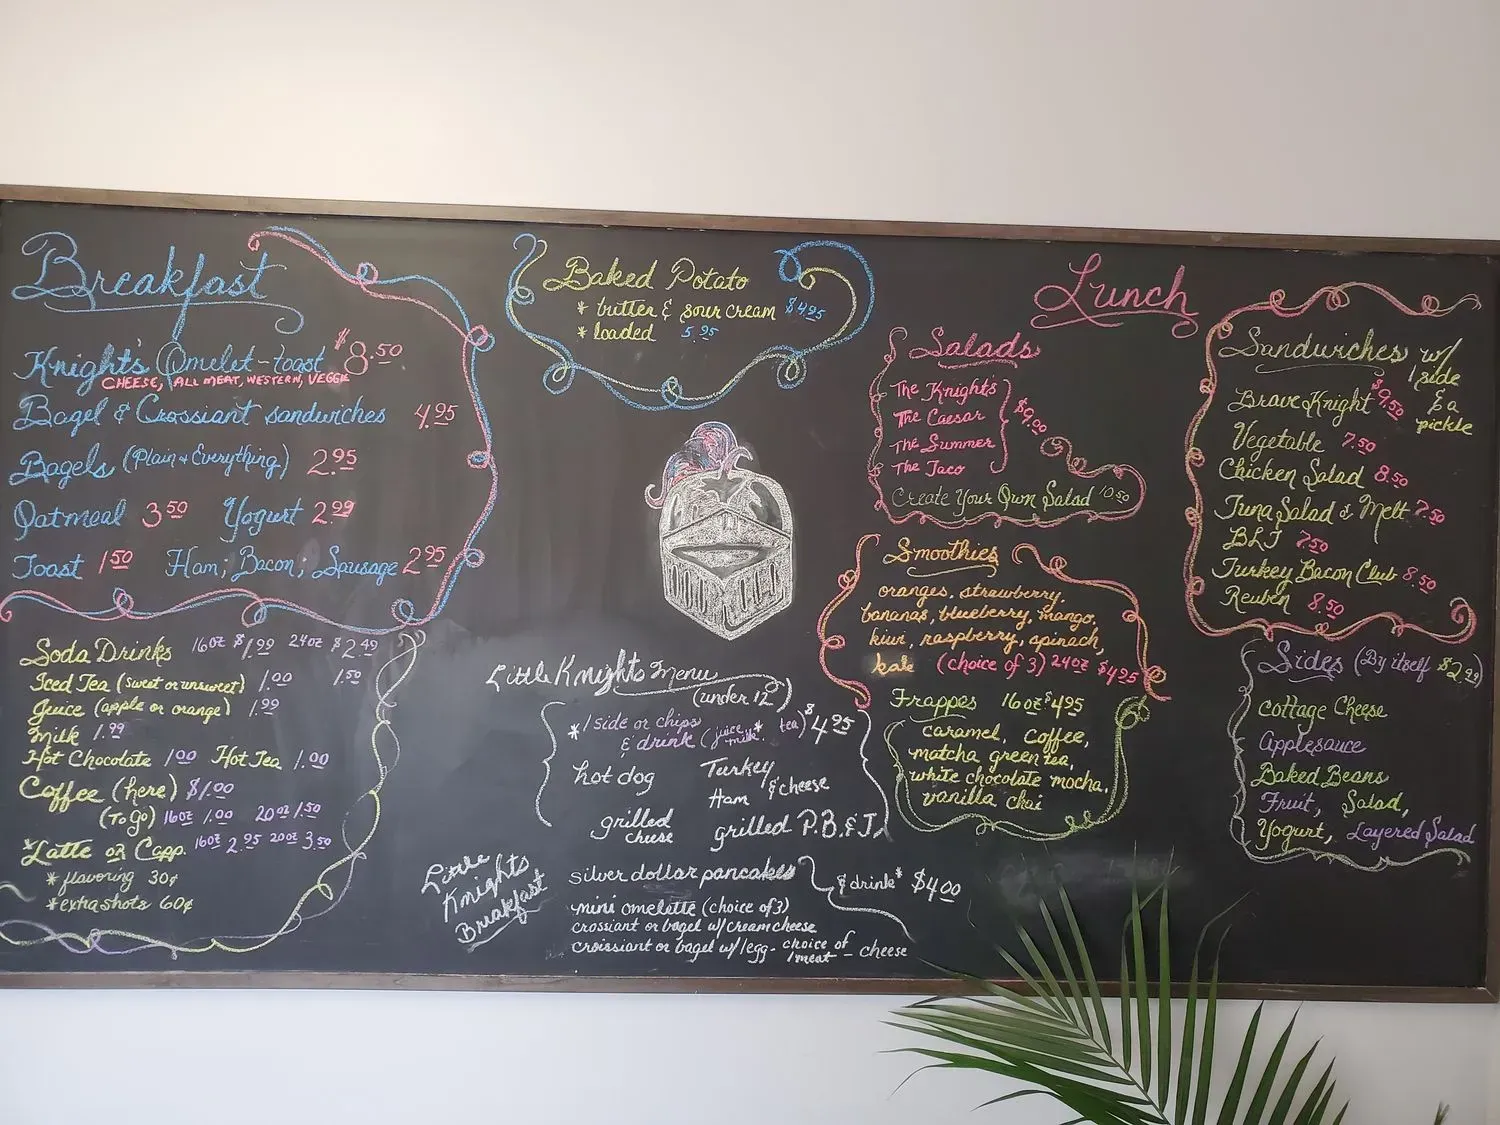 Breakfast
Knight's Omelet - toast $8.50
CHEESE, ALL MEAT, WESTERN, VEGGIE
Bagel & Crossiant sandwiches 4.95
Bagels (Plain + Everything) 2.95
Oatmeal 3.50 Yogurt 2.99
Toast 1.50 Ham; Bacon; Sausage 2.95
Soda Drinks 16oz $1.99 24oz $2.49
Iced Tea (sweet or unsweet) 1.00 1.50
Juice (apple or orange) 1.99
Milk 1.99
Hot Chocolate 1.00 Hot Tea 1.00
Coffee (here) $1.00
(To go) 16oz 1.00 20oz 1.50
*Latte or Capp. 16oz 2.95 20oz 3.50
* flavoring 30¢
* extra shots 60¢
Baked Potato
* butter & sour cream $4.95
* loaded 5.95
Little Knights Menu
(under 12)
* 1 side or chips
& drink (juice milk* tea) $4.95
hot dog
Turkey
Ham & cheese
grilled
cheese
grilled P.B.&J.
Little
Knights
Breakfast
silver dollar pancakes
& drink* $4.00
mini omelette (choice of 3)
crossiant or bagel w/creamcheese
croissiant or bagel w/egg - choice of
1 meat - cheese
Lunch
Salads
The Knights
The Caesar
The Summer
The Taco
$9.00
Create Your Own Salad 10.50
Smoothies
oranges, strawberry,
bananas, blueberry, mango,
kiwi, raspberry, spinach,
kale (choice of 3) 24oz $4.95
Frappes 16oz $4.95
caramel, coffee,
matcha green tea,
white chocolate mocha,
vanilla chai
Sandwiches w/
1 side
& a
pickle
Brave Knight $9.50
Vegetable 7.50
Chicken Salad 8.50
Tuna Salad & Melt 7.50
BLT 7.50
Turkey Bacon Club 8.50
Reuben 8.50
Sides (By itself $2.99)
Cottage Cheese
Applesauce
Baked Beans
Fruit, Salad,
Yogurt, Layered Salad